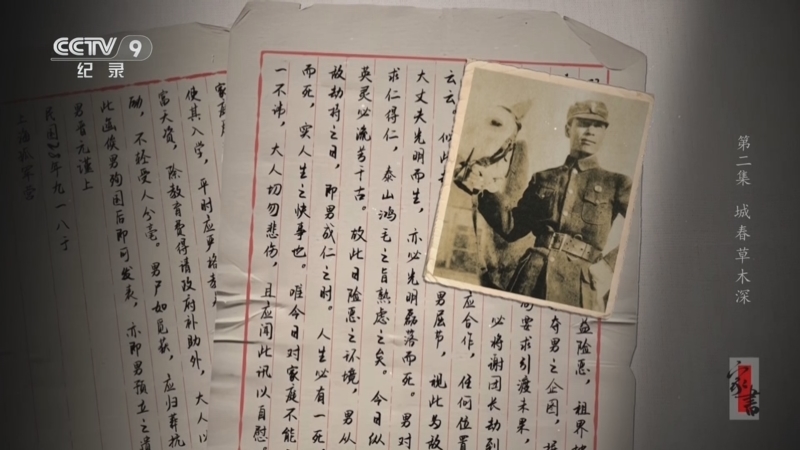 CCTV 9
纪录
第二集 城春草木深
家书
益险恶，租界
夺男之企图，
向要求引渡未果，
必将谢团长劫到
应合作，任何位置
云云。似此
男屈节，视此与放
大丈夫光明而生，亦必光明磊落而死。男对
求仁得仁，泰山鸿毛之旨熟虑之矣。今日纵
英灵必流芳千古。故此日险恶之环境，男从
敌劫持之日，即男成仁之时。人生必有一死，
而死，实人生之快事也。唯今日对家庭不能
一不讳，大人切勿悲伤，且应闻此讯以自慰。
家庭
使其入学，平时应严格
富天资，除教育费得请政府补助外，大人以
励，不轻受人分毫。男尸如觅获，应归葬抗
此函俟男殉国后即可发表，亦即男预立之遗
男晋元谨上
民国30年九一八于
上海孤军营